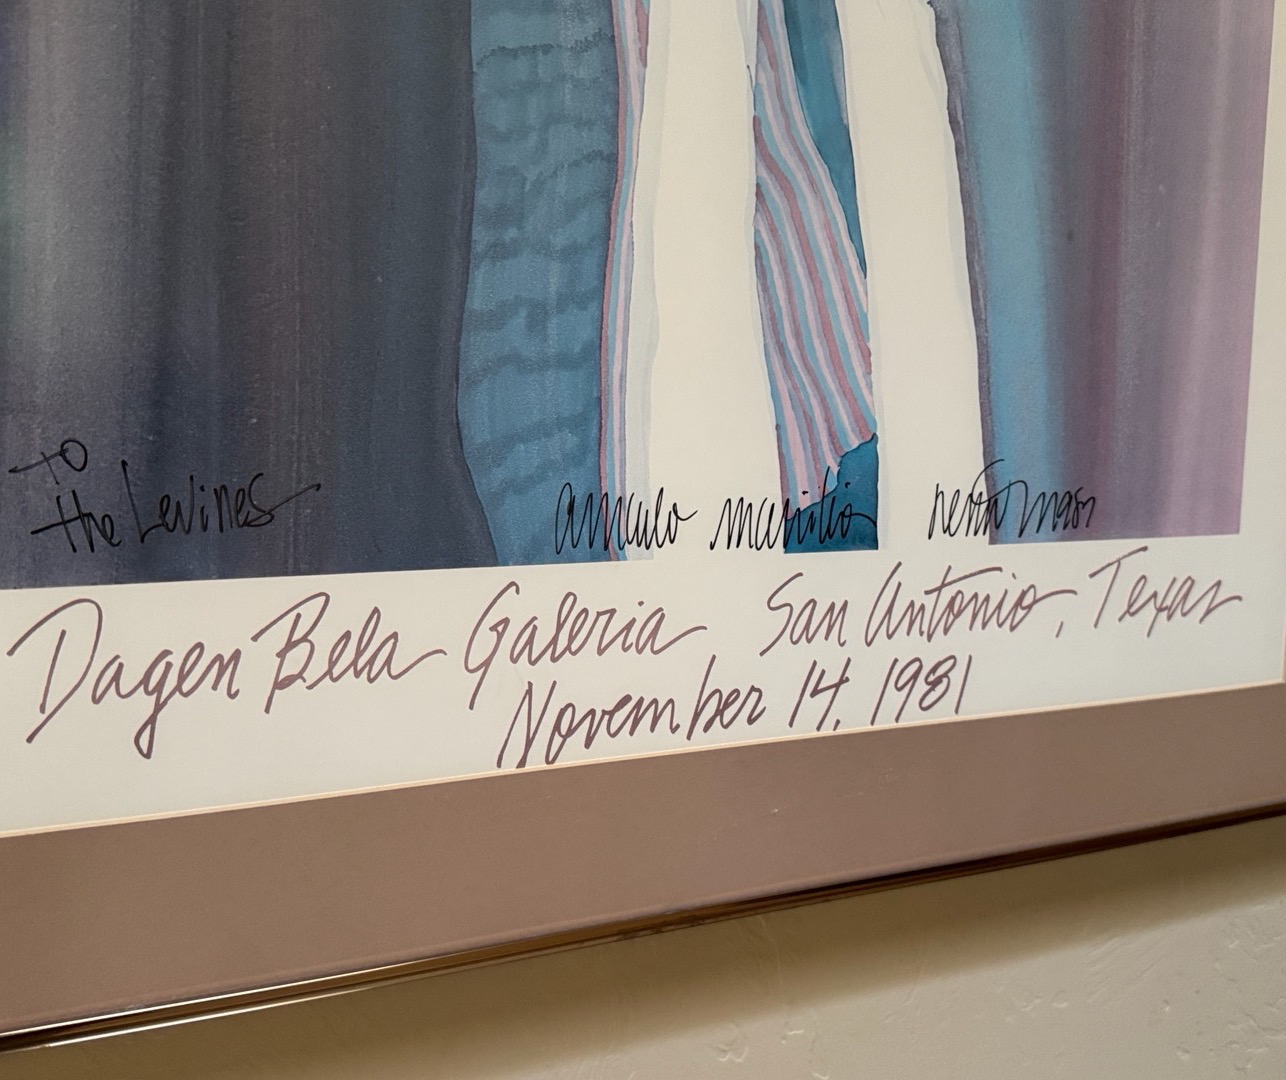 to
the Levines
Amado Maurilio Peña
Dagen Bela Galeria, San Antonio, Texas
November 14, 1981